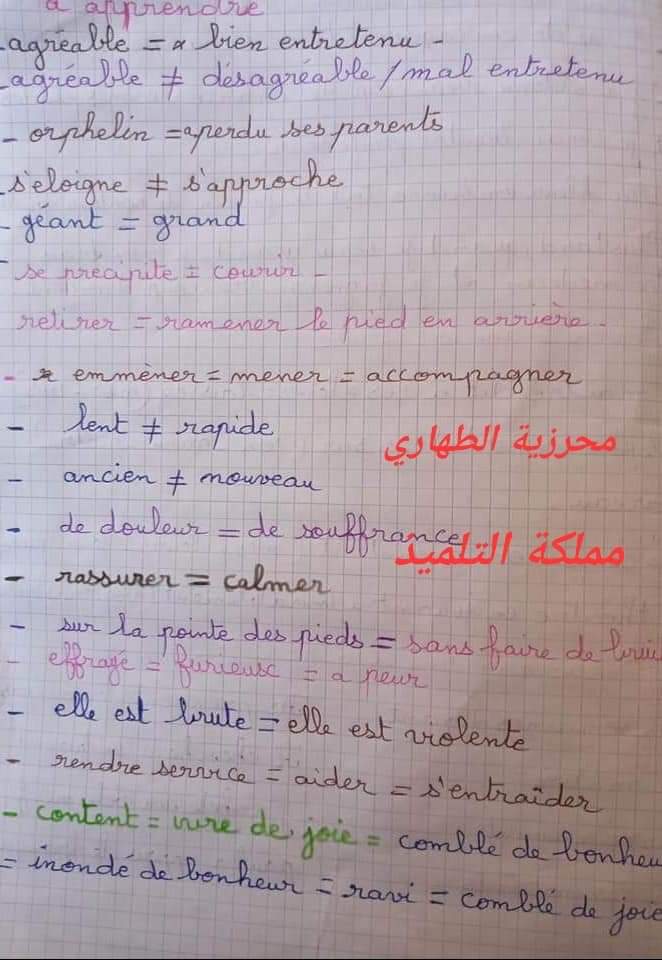 à apprendre
- agréable = x bien entretenu -
- agréable ≠ désagréable / mal entretenu
- orphelin = a perdu ses parents
- s'eloigne ≠ s'approche
- géant = grand
- se précipite = courir -
retirer = ramener le pied en arrière -
- x emmèner = mener = accompagner
- lent ≠ rapide
محرزية الطهاري
- ancien ≠ nouveau
- de douleur = de souffrance
مملكة التلميذ
- rassurer = calmer
- sur la pointe des pieds = sans faire de brui
- effrayé = furieuse = a peur
- elle est brute = elle est violente
- rendre service = aider = s'entraîder
- content = ivre de joie = comblé de bonheu
= inondé de bonheur = ravi = comblé de joie